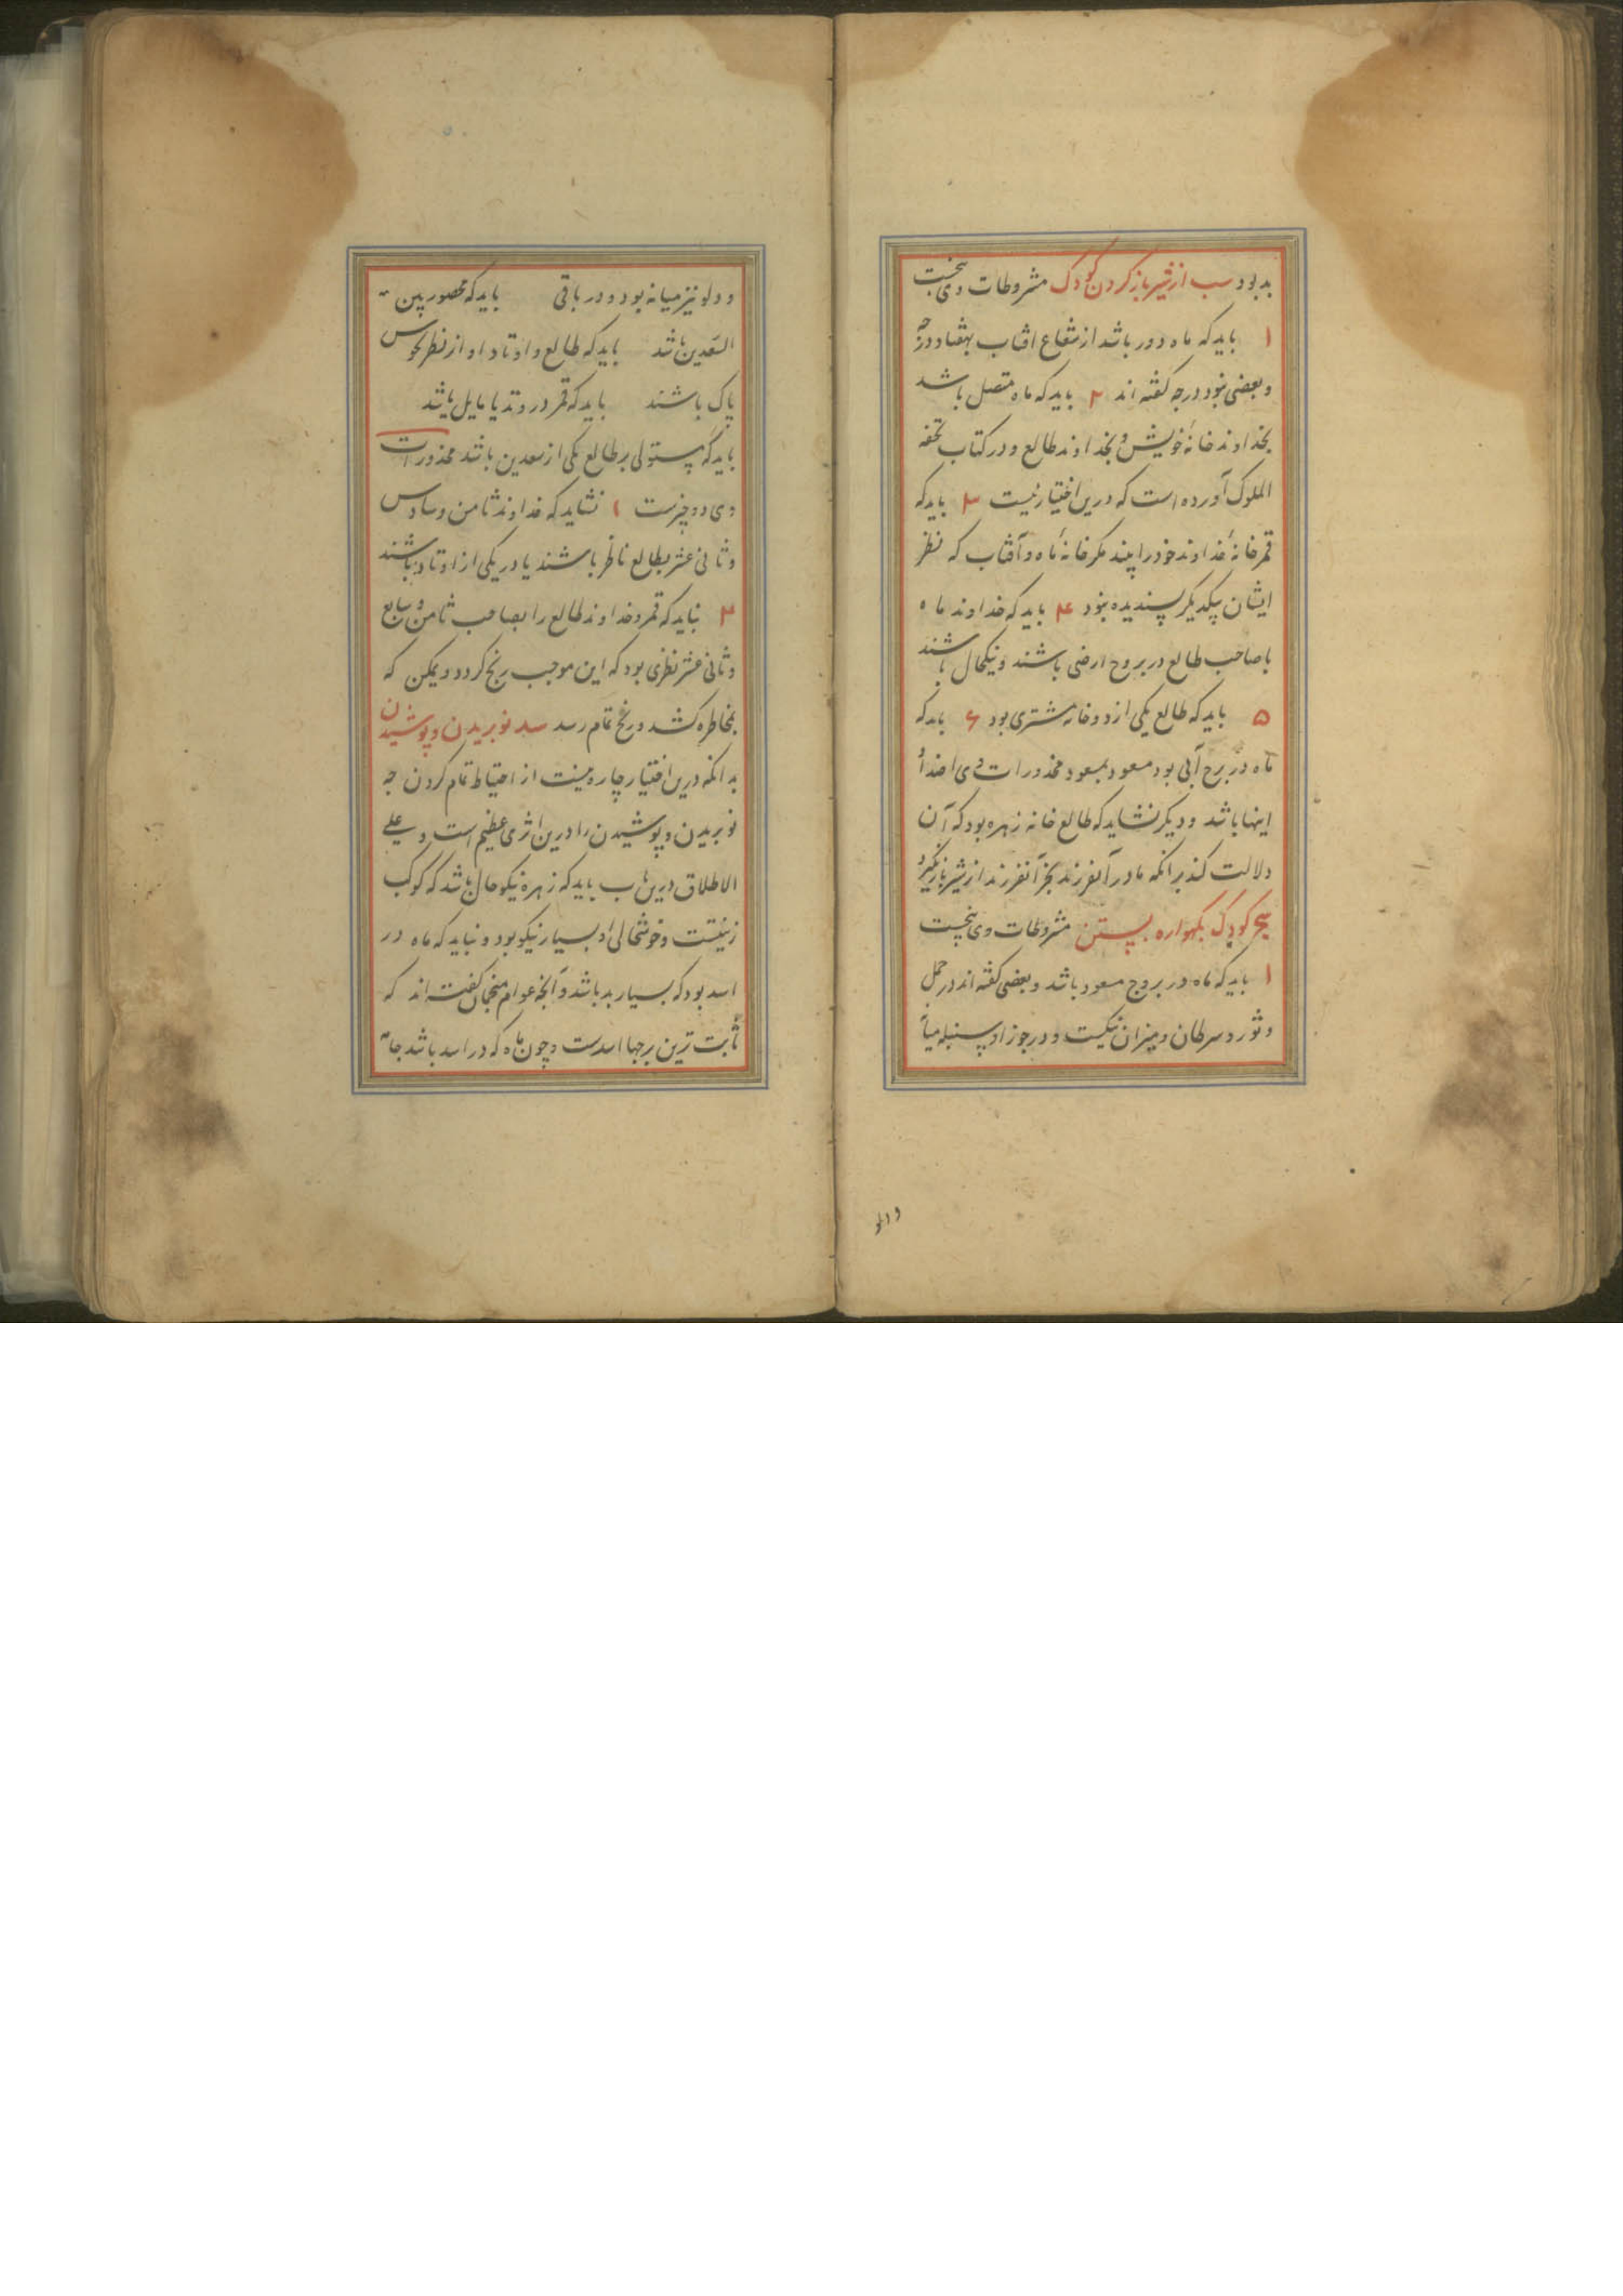 بد بود سب از شیر باز کردن کودک مشروطات وی پنجست
۱ باید که ماه دور باشد از شعاع افتاب بهفتاد درجه
و بعضی بنود درجه گفته اند ۲ باید که ماه متصل باشد
بخداوند خانهٔ خویش و بخداوند طالع و در کتاب تحفه
الملوک آورده است که درین اختیار نیست ۳ باید که
قمر خانهٔ خداوند خود را بیند مگر خانهٔ ماه و آفتاب که نظر
ایشان بیکدیگر پسندیده بنود ۴ باید که خداوند ماه
با صاحب طالع در بروج ارضی باشند و نیکحال باشند
۵ باید که طالع یکی از دو خانه مشتری بود ۶ باید که
ماه در برج آبی بود مسعود بمسعود محذورات وی اضداد
اینها باشد و دیگر نشاید که طالع خانه زهره بود که آن
دلالت کند برانکه مادر آنفرزند بجز آنفرزند از شیر باز نگیرد
سج کودک بگهواره بستن مشروطات وی پنجست
۱ باید که ماه در بروج مسعود باشد و بعضی گفته اند در حمل
و ثور و سرطان و میزان نیکست و در جوزا و سنبله میانه
و دلو
و دلو نیز میانه بود و در باقی باید که محصور بین
السعدین باشد باید که طالع و اوتاد او از نظر نحوس
پاک باشند باید که قمر در وتد یا مایل باشد
باید که مستولی بر طالع یکی از سعدین باشد محذورات
وی دو چیزست ۱ نشاید که خداوند ثامن و سادس
و ثانی عشر بطالع ناظر باشند یا در یکی از اوتاد باشند
۲ نباید که قمر و خداوند طالع را بصاحب ثامن و سابع
و ثانی عشر نظری بود که این موجب رنج گردد و یمکن که
بمخاطره کشد و رنج تمام رسد سد نو بریدن و پوشیدن
بدانکه درین اختیار چاره نیست از احتیاط تمام کردن چه
نو بریدن و پوشیدن را درین اثری عظیم است و علی
الاطلاق درین باب باید که زهره نیکو حال باشد که کوکب
زینتست و خوشحالی او بسیار نیکو بود و نباید که ماه در
اسد بود که بسیار بد باشد و آنچه عوام منجمان گفته اند که
ثابت ترین برجها اسدست و چون ماه که در اسد باشد جامه